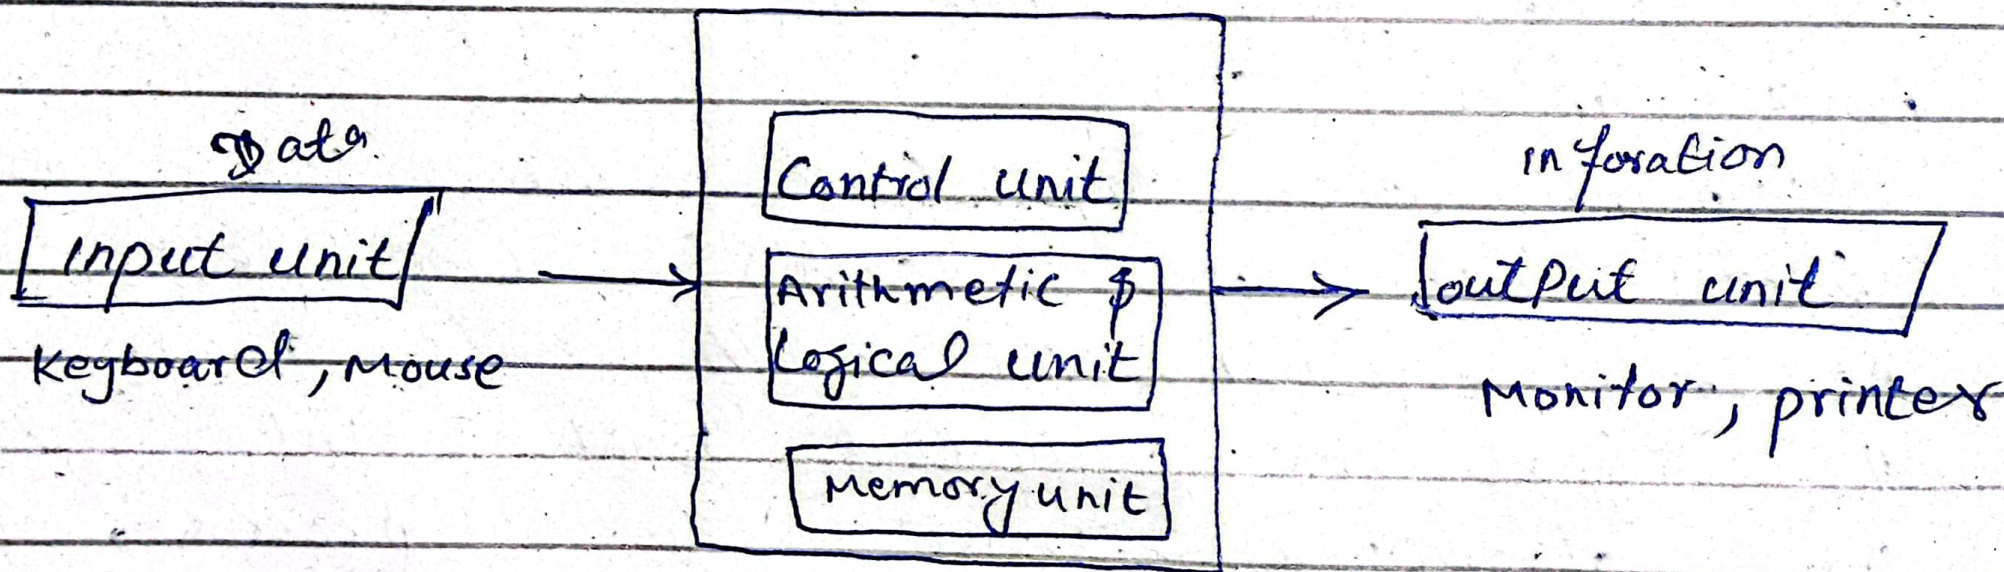 Data
Input unit
Keyboard, Mouse
Control unit
Arithmetic &
Logical unit
Memory unit
inforation
output unit
Monitor, printer